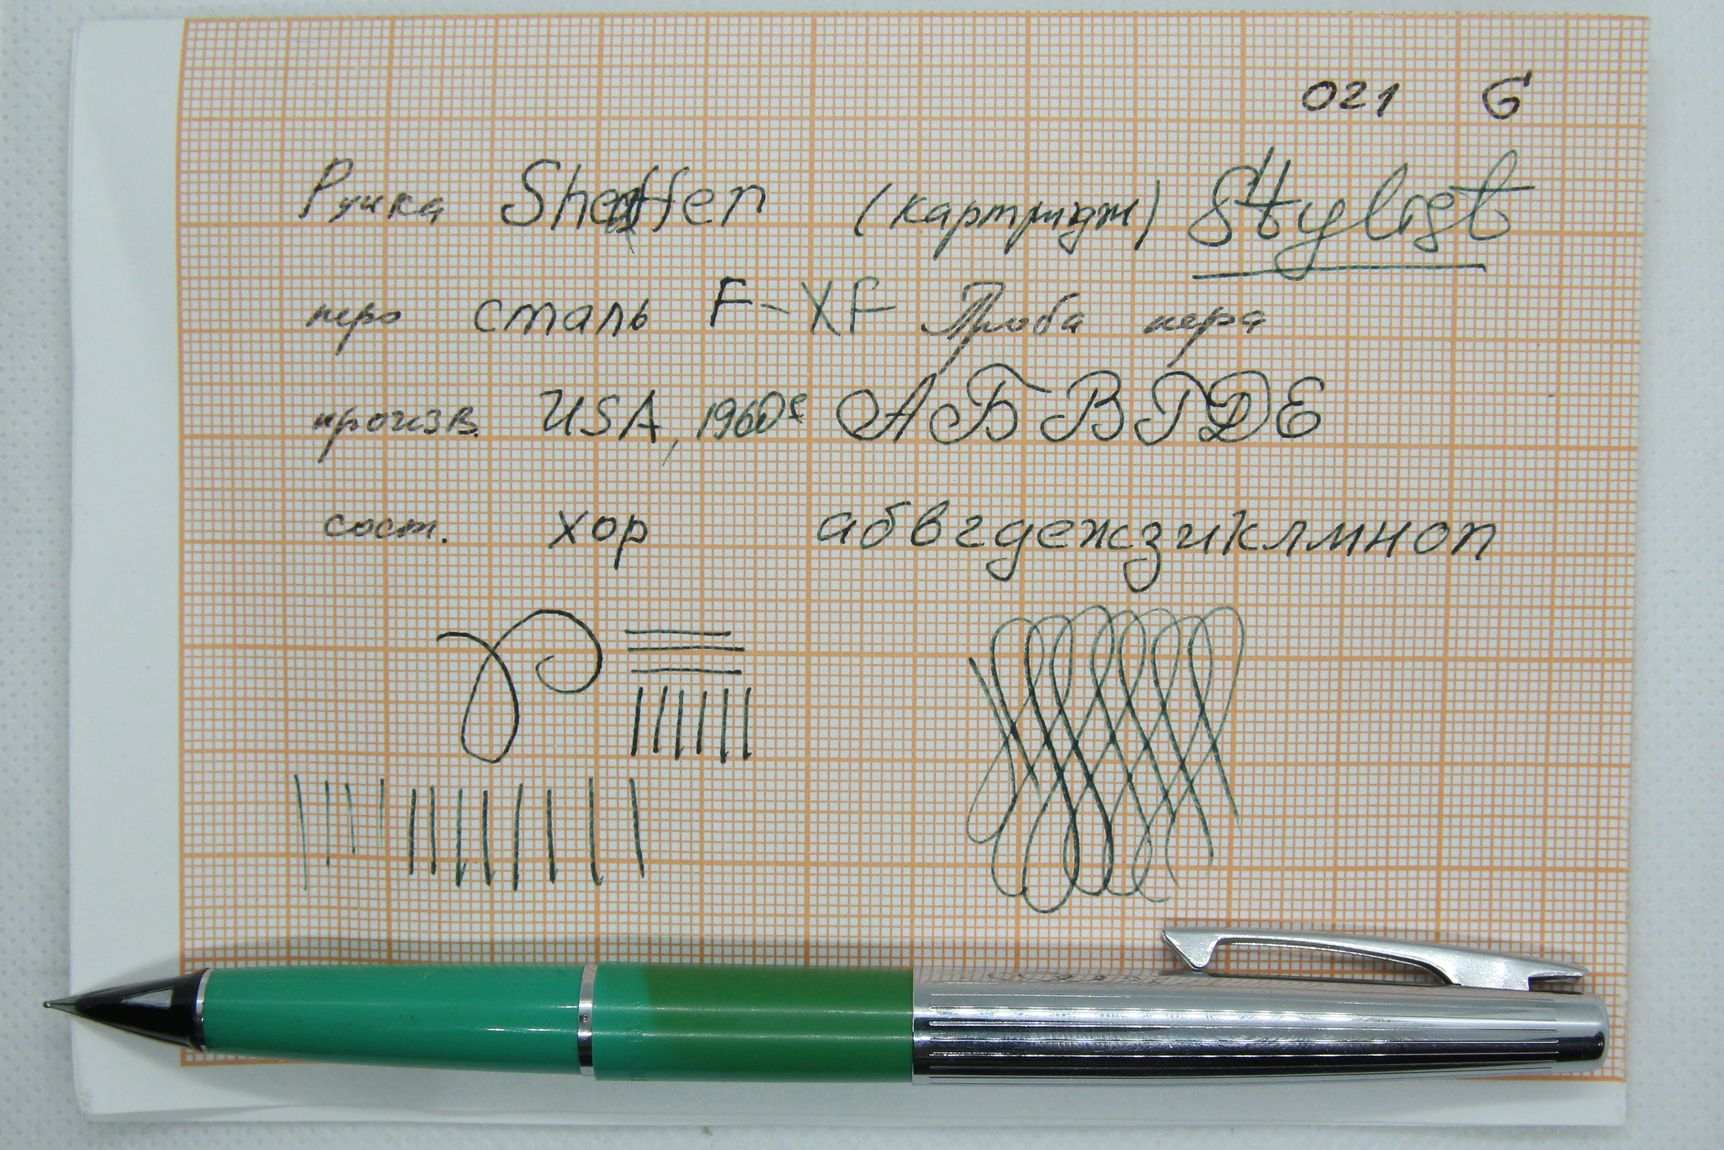 021 G
Ручка Sheaffer (картридж) Stylist
перо сталь F-XF Проба пера
произв. USA, 1960е АБВГДЕ
сост. хор абвгдежзиклмноп